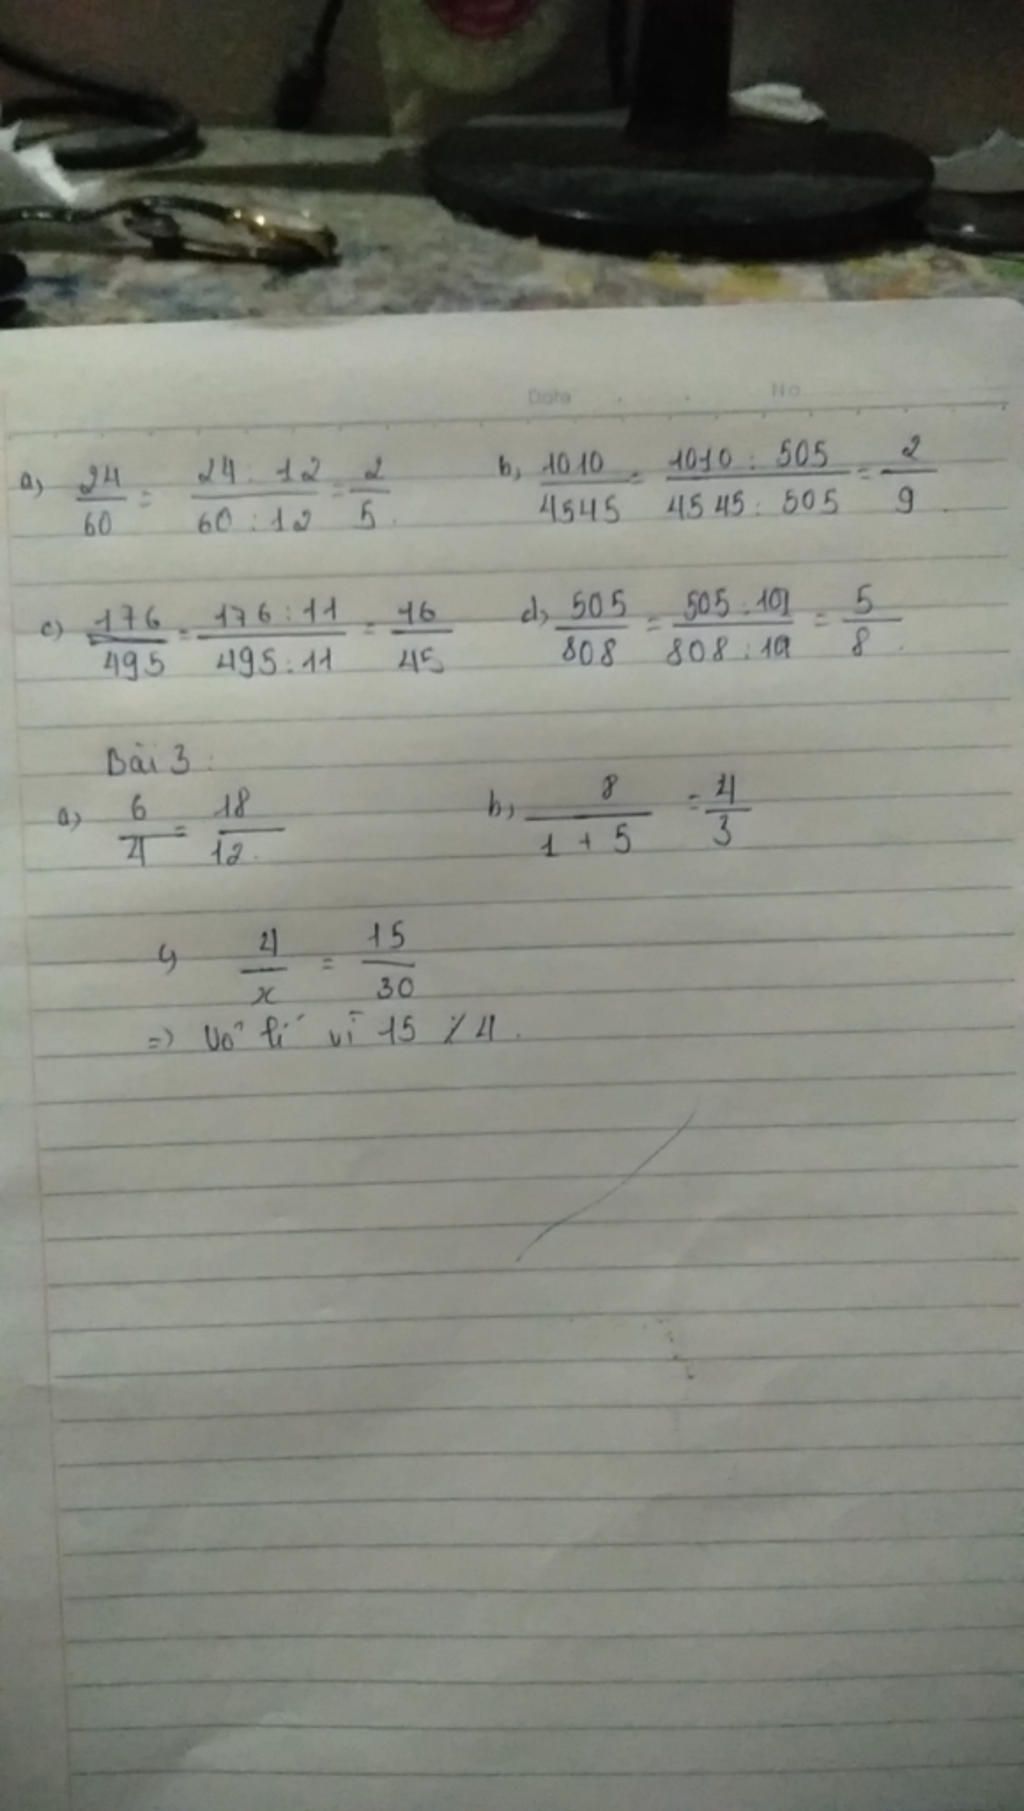 Date No
a) 24/60 = 24 : 12/60 : 12 = 2/5. b, 1010/4545 = 1010 : 505/4545 : 505 = 2/9.
c) 176/495 = 176 : 11/495 : 11 = 16/45 d, 505/808 = 505 : 101/808 : 101 = 5/8.
Bài 3 :
a) 6/4 = 18/12. b, 8/1 + 5 = 4/3
c) 4/x = 15/30
=) Vô lí vì 15 ⋮̸ 4.